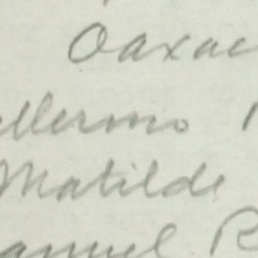 Oaxac
ellermo
Matilde
anuel R